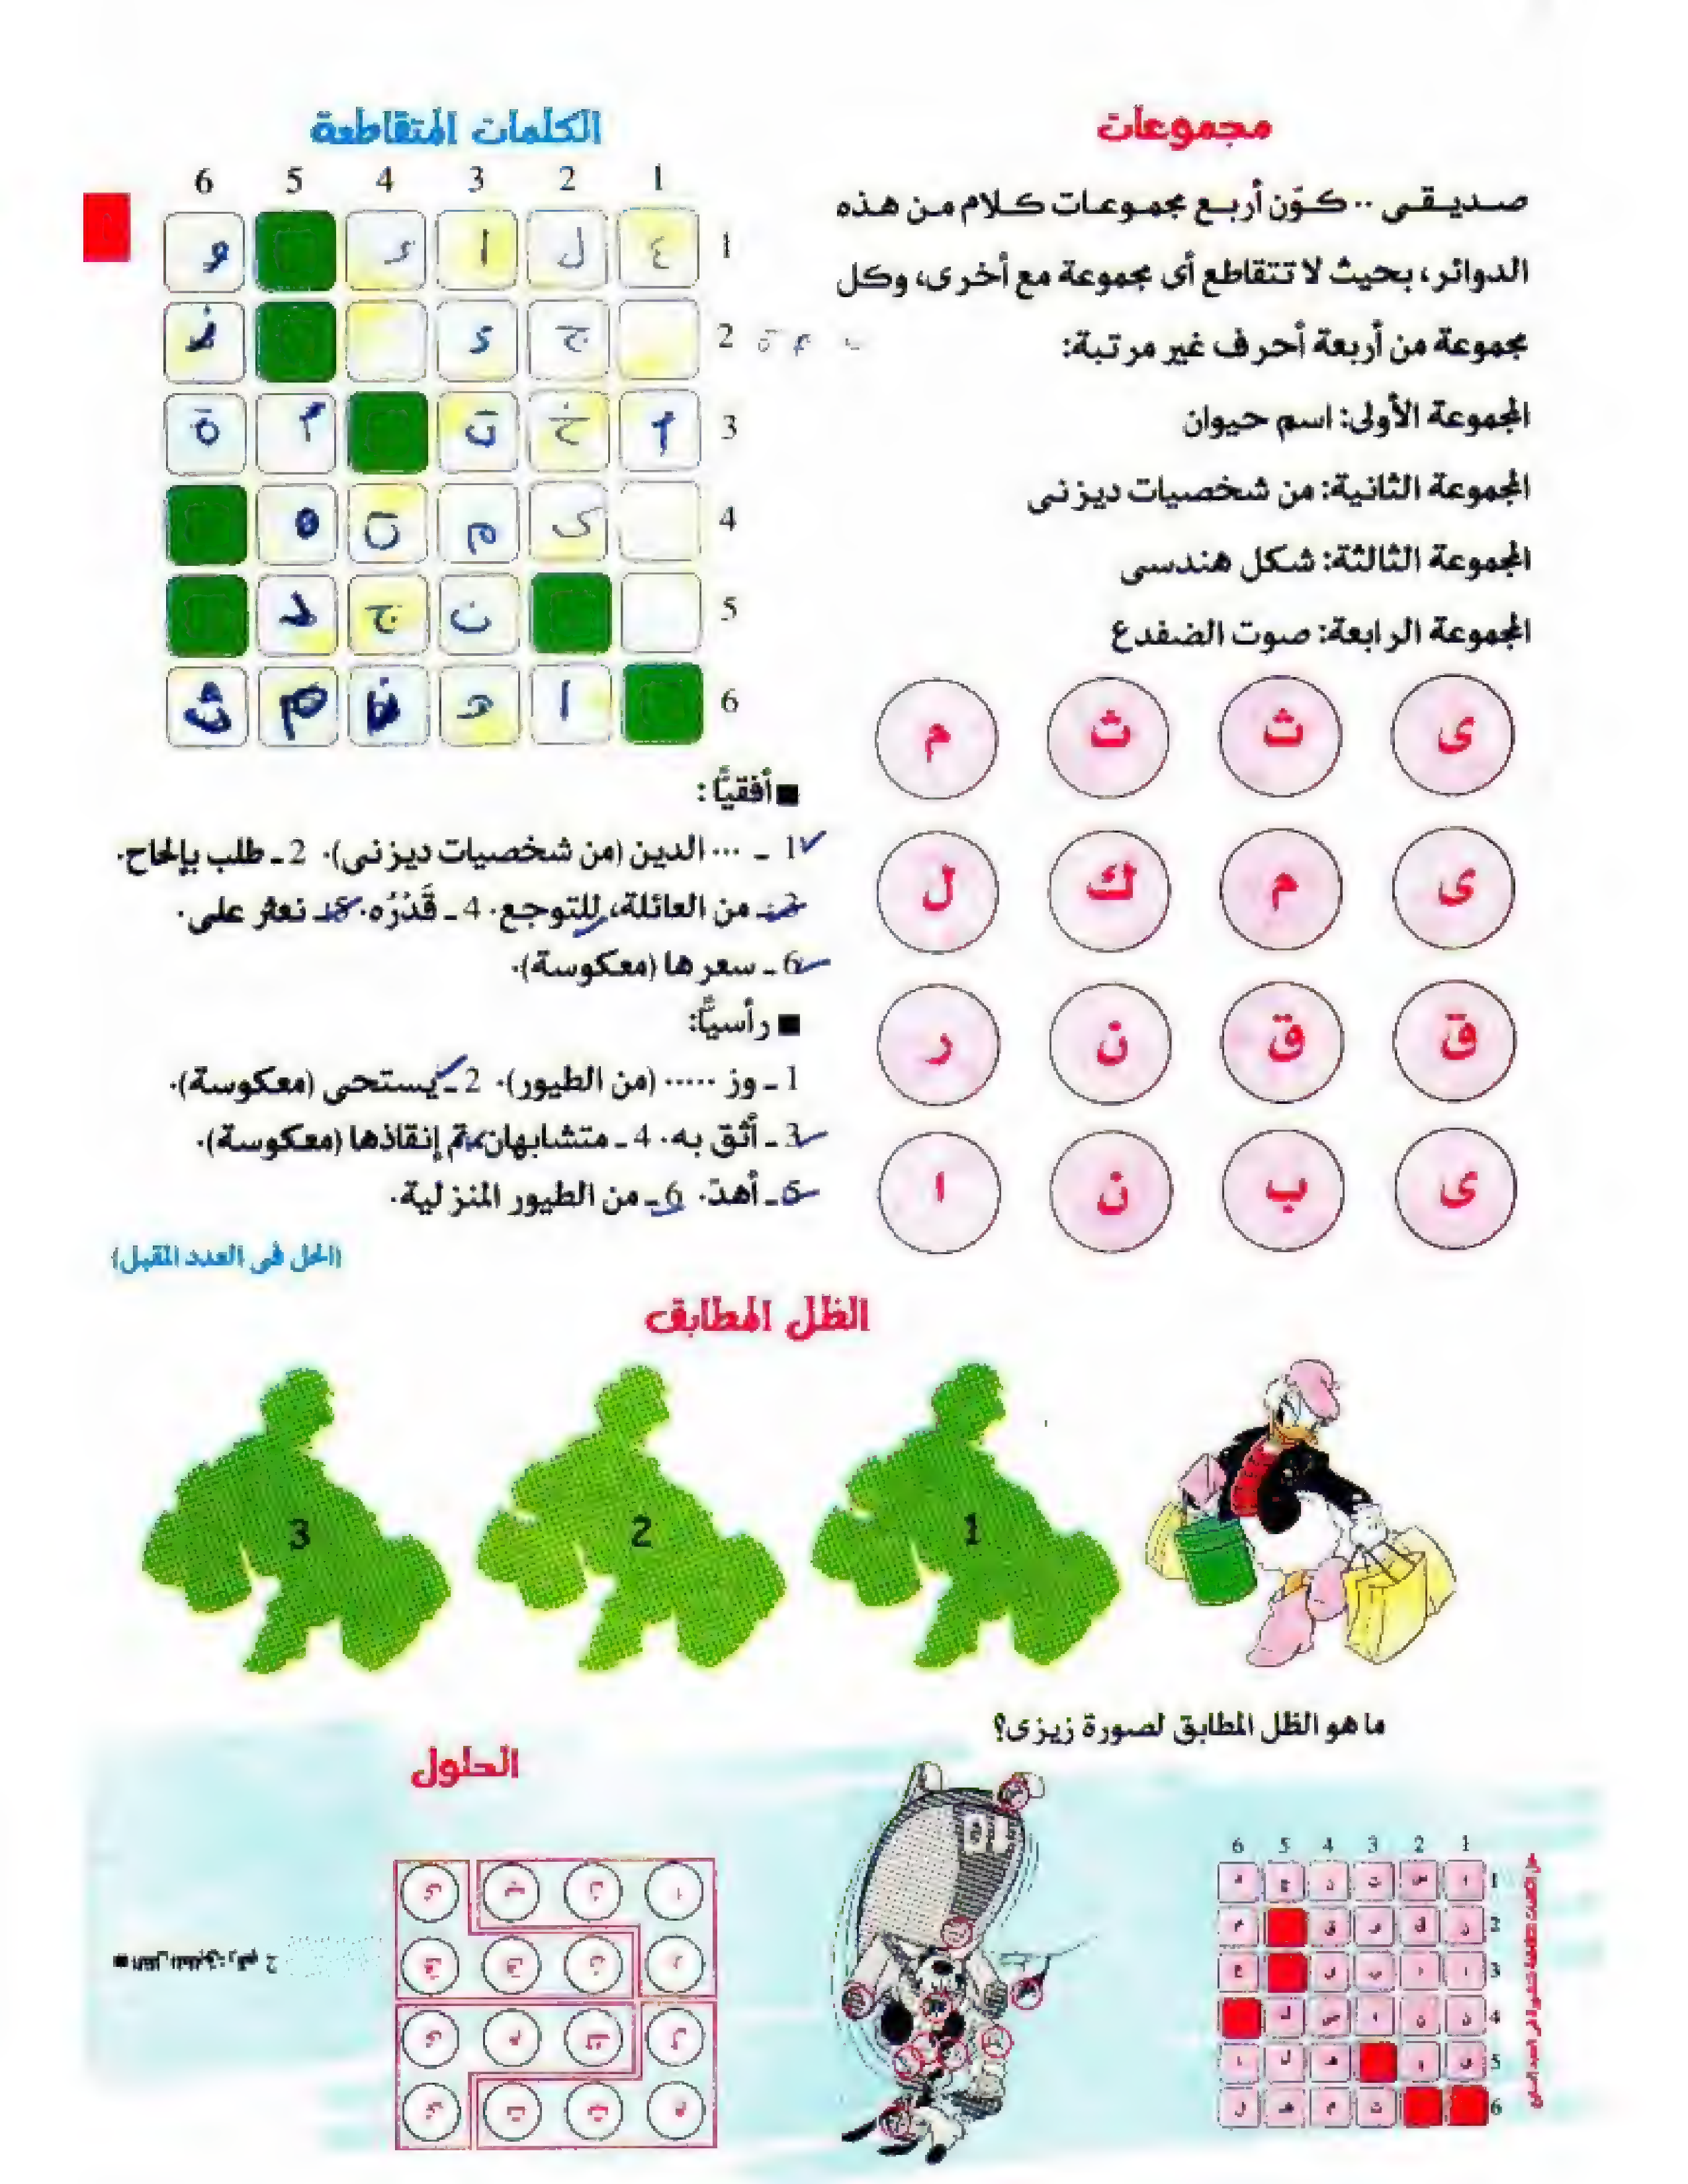 مجموعات
صديقى .. كوّن أربع مجموعات كلام من هذه
الدوائر، بحيث لا تتقاطع أى مجموعة مع أخرى، وكل
مجموعة من أربعة أحرف غير مرتبة:
المجموعة الأولى: اسم حيوان
المجموعة الثانية: من شخصيات ديزنى
المجموعة الثالثة: شكل هندسى
المجموعة الرابعة: صوت الضفدع
ى ث ث م
ى م ك ل
ق ق ن ر
ى ب ن ا
الكلمات المتقاطعة
1 2 3 4 5 6
1 ع ل ا ء و
2 ج د
3 أ خ ت آ ة
4 م ن ه
5 ن ج د
6 ا ه ن م ث
■ أفقيًّا:
1 ـ ... الدين (من شخصيات ديزنى). 2 ـ طلب بإلحاح.
3 ـ من العائلة، للتوجع. 4 ـ قَدْرُه. 5 ـ نعثر على.
6 ـ سعرها (معكوسة).
■ رأسيًّا:
1 ـ وز ..... (من الطيور). 2 ـ يستحى (معكوسة).
3 ـ أثق به. 4 ـ متشابهان، تم إنقاذها (معكوسة).
5 ـ أهدّ. 6 ـ من الطيور المنزلية.
(الحل فى العدد المقبل)
الظل المطابق
1
2
3
ما هو الظل المطابق لصورة زيزى؟
الحلول
1 2 3 4 5 6
1
2
3
4
5
6
ا ن ب ى
ر ن ق ق
ل ك م ى
م ث ث ى
■ الظل المطابق: رقم 2